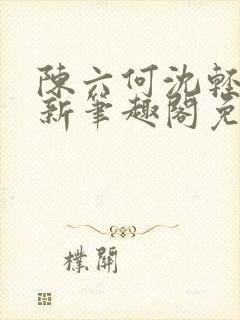 陳六何沈輕
新筆趣閣免
樸開